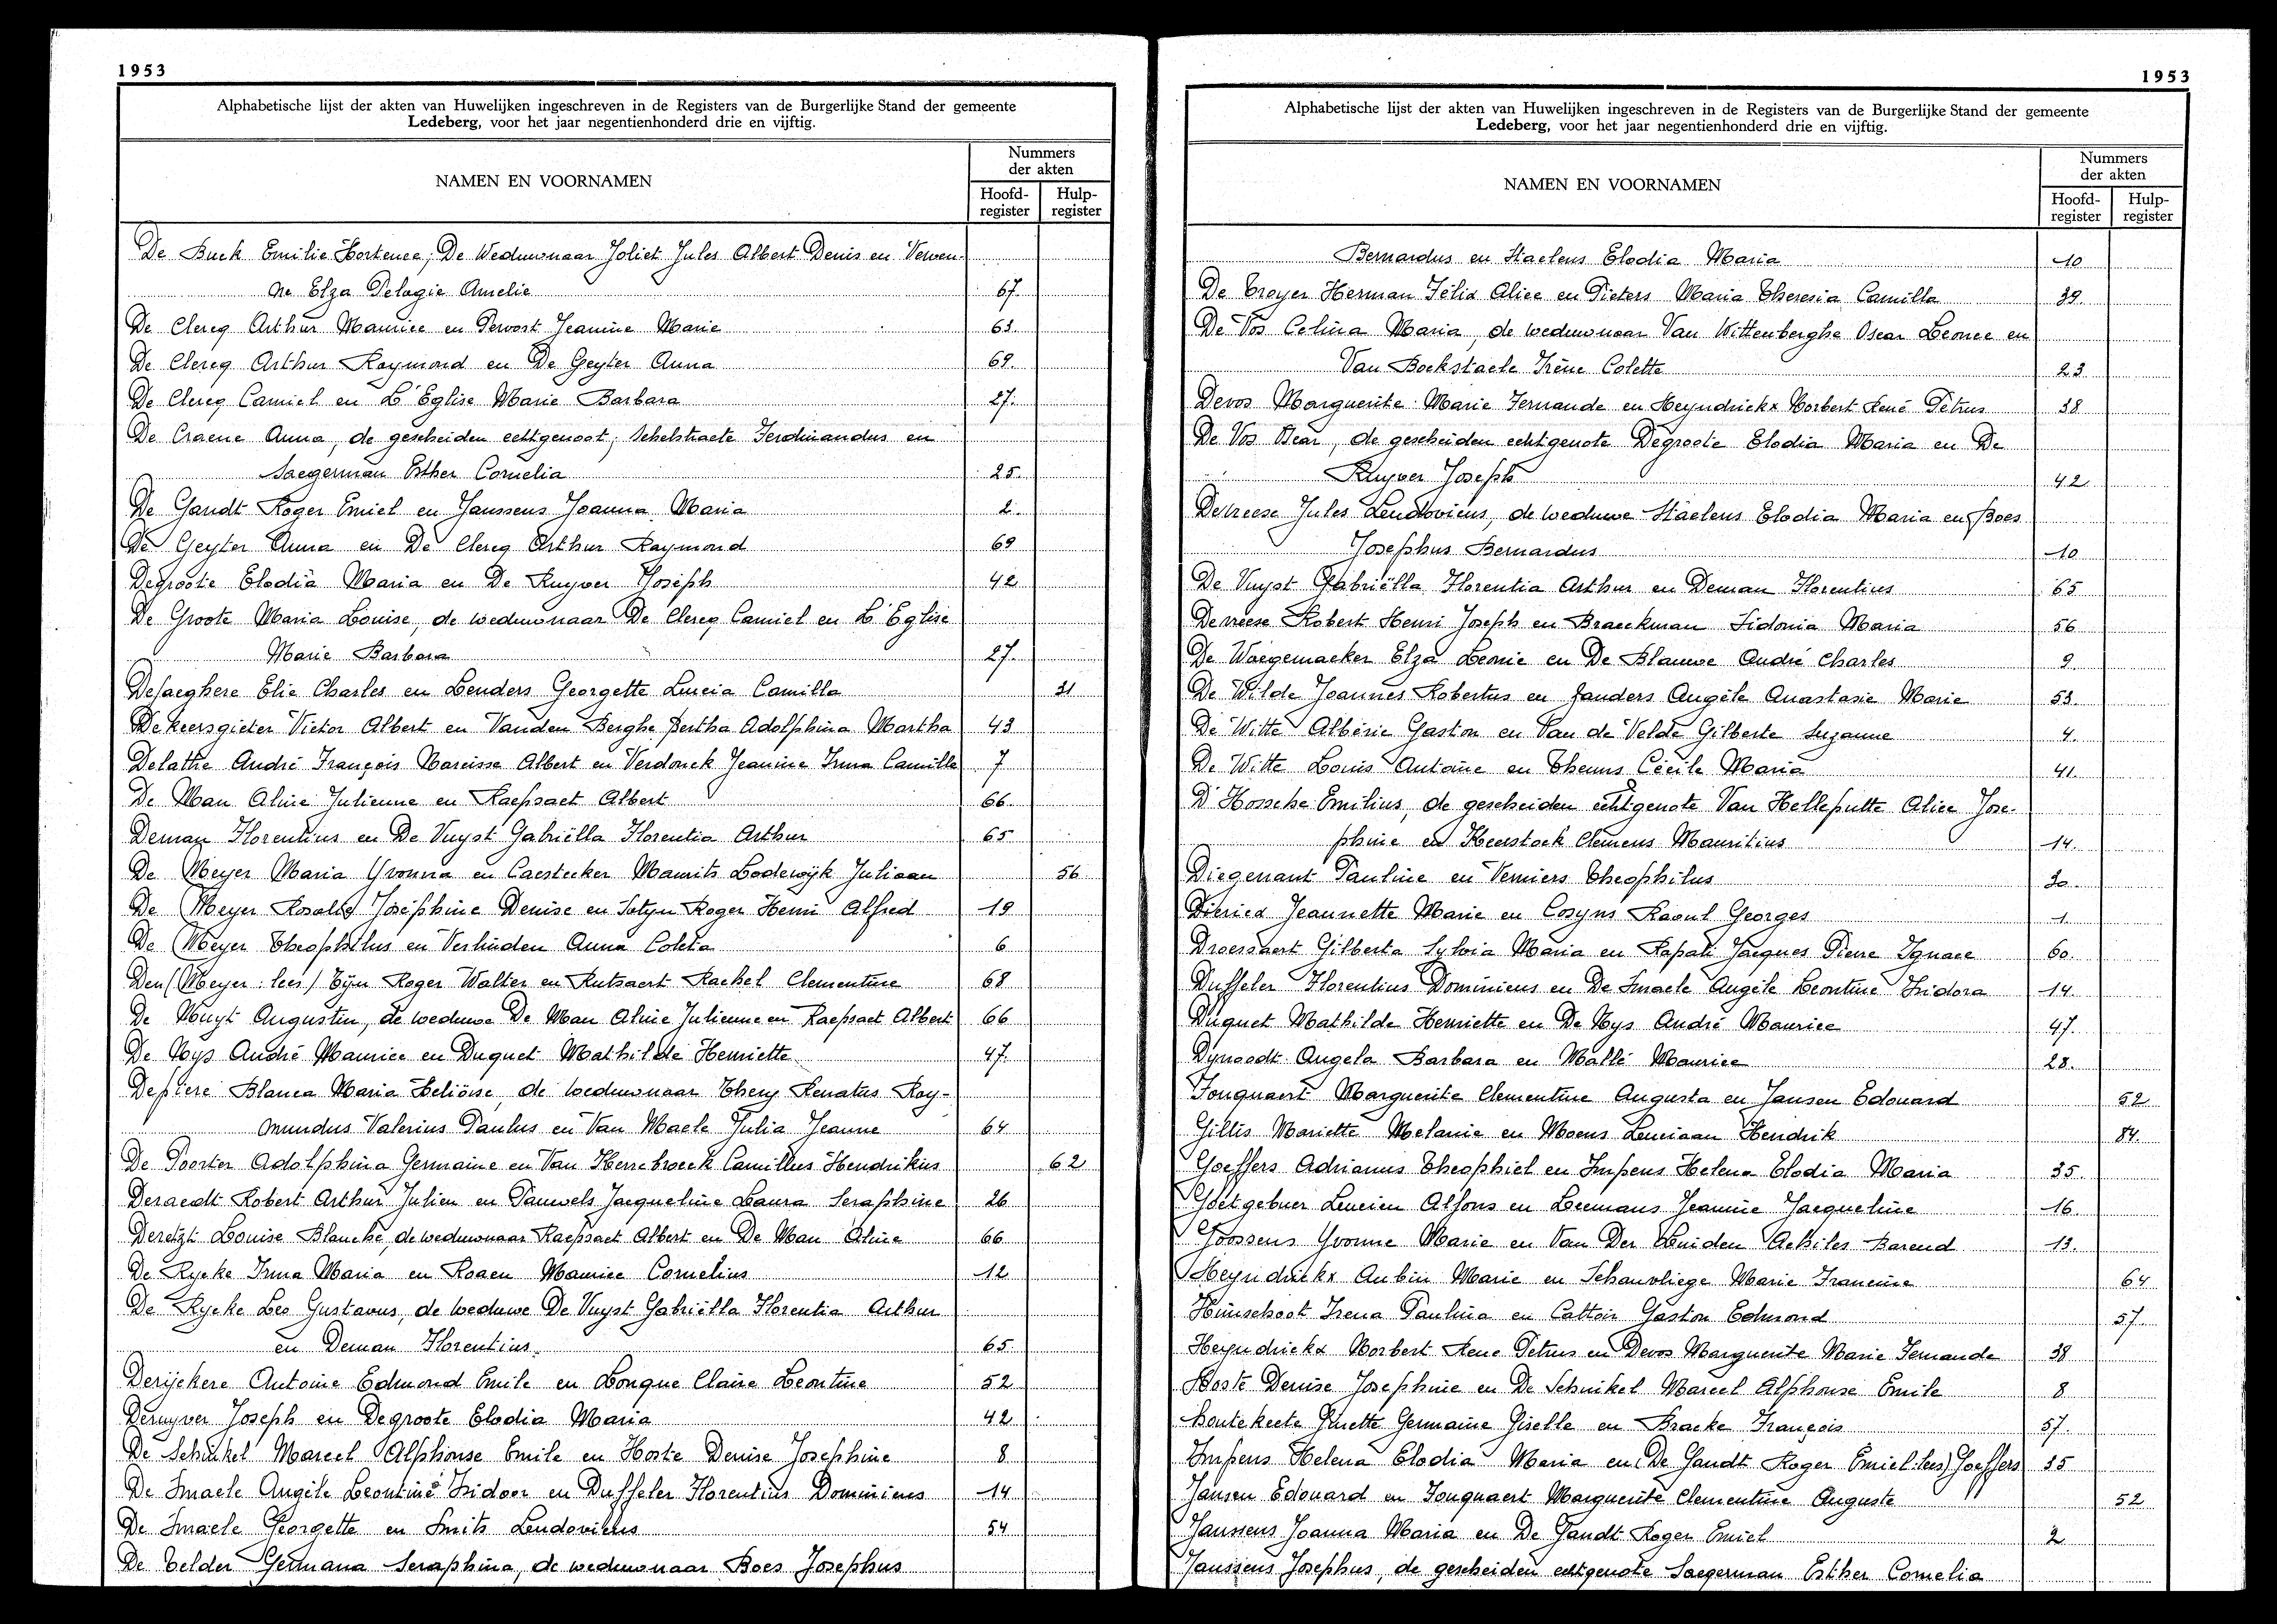 1953
Alphabetische lijst der akten van Huwelijken ingeschreven in de Registers van de Burgerlijke Stand der gemeente
Ledeberg, voor het jaar negentienhonderd drie en vijftig.
NAMEN EN VOORNAMEN
Nummers
der akten
Hoofd-
register
Hulp-
register
De Buck Emilie Hortence, De Weduwnaar Joliet Jules Albert Denis en Verven-
ne Elza Pelagie Amelie 67.
De Clercq Arthur Maurice en Pervost Jeannine Marie 63.
De Clercq Arthur Raymond en De Geyter Anna 69.
De Clercq Camiel en L'Eglise Marie Barbara 27.
De Craene Anna, de gescheiden echtgenoot, Schelstraete Ferdinandus en
Saegerman Esther Cornelia 25.
De Gandt Roger Emiel en Janssens Joanna Maria 2.
De Geyter Anna en De Clercq Arthur Raymond 69
Degroote Elodia Maria en De Ruyver Joseph 42
De Groote Maria Louise, de weduwnaar De Clercq Camiel en L'Eglise
Marie Barbara 27.
Dejaeghere Elie Charles en Lenders Georgette Lucia Camilla 31
De Keersgieter Victor Albert en Vanden Berghe Bertha Adolphina Martha 43
Delathe André François Narcisse Albert en Verdonck Jeanine Irma Camille 7
De Man Aline Julienne en Raepsaet Albert 66.
Deman Florentius en De Vuyst Gabriëlla Florentia Arthur 65
De Meyer Maria Yvonna en Caestecker Maurits Lodewijk Juliaan 56
De Meyer Rosalie Joséphine Denise en Sutyn Roger Henri Alfred 19
De Meyer Theophilus en Verlinden Anna Coleta 6
Den (Meyer: lees) Tijn Roger Walter en Rutsaert Rachel Clementine 68
De Muyt Augustin, de weduwe De Man Aline Julienne en Raepsaet Albert 66
De Nys André Maurice en Duquet Mathilde Henriette 47.
Depiere Blanca Maria Heliöise, de weduwnaar Thery Renatus Ray-
mundus Valerius Paulus en Van Maele Julia Jeanne 64
De Poorter Adolphina Germaine en Van Herrebroeck Camillus Hendrikus 62
Deraedt Robert Arthur Julien en Pauwels Jacqueline Laura Seraphine 26
Deretzt Louise Blanche, de weduwnaar Raepsaet Albert en De Man Aline 66
De Rycke Irma Maria en Roaen Maurice Cornelius 12
De Rycke Leo Gustavus, de weduwe De Vuyst Gabriëlla Florentia Arthur
en Deman Florentius. 65
Derijckere Antoine Edmond Emile en Longue Claire Leontine 52
Deruyver Joseph en Degroote Elodia Maria 42
De Schinkel Marcel Alphonse Emile en Hoste Denise Josephine 8
De Smaele Angèle Leontine Isidoor en Duffeler Florentius Dominicus 14
De Smaele Georgette en Smits Ludovicus 54
De Telder Germana Seraphina, de weduwnaar Boes Josephus
1953
Alphabetische lijst der akten van Huwelijken ingeschreven in de Registers van de Burgerlijke Stand der gemeente
Ledeberg, voor het jaar negentienhonderd drie en vijftig.
NAMEN EN VOORNAMEN
Nummers
der akten
Hoofd-
register
Hulp-
register
Bernardus en Staelens Elodia Maria 10
De Troyer Herman Félix Alice en Pieters Maria Theresia Camilla 39.
De Vos Celina Maria, de weduwnaar Van Wittenberghe Oscar Leonce en
Van Bockstaele Irène Colette 23
Devos Marguerite Marie Fernande en Heyndrickx Norbert René Petrus 38
De Vos Near, de gescheiden echtgenote Degroote Elodia Maria en De
Ruyver Joseph 42
Devreese Jules Leudovicus, de weduwe Staelens Elodia Maria en Boes
Josephus Bernardus 10
De Vuyst Gabriëlla Florentia Arthur en Deman Florentius 65
Devreese Robert Henri Joseph en Braeckman Sidonia Maria 56
De Waegemaeker Elza Leonie en De Blauwe André Charles 9
De Wilde Joannes Robertus en Janders Angèle Anastasie Marie 53.
De Witte Albéric Gaston en Van de Velde Gilberte Suzanne 4.
De Witte Louis Antoine en Theuns Cécile Maria 41.
D'Hossche Emilius, de gescheiden echtgenote Van Helleputte Alice Jose-
phine en Heerstock Clemens Mauritius 14.
Diegenant Pauline en Verniers Theophilus 30
Diericx Jeannette Marie en Cosyns Raoul Georges 1.
Droessaert Gilberta Sylvia Maria en Rapati Jacques Pierre Ignace 60.
Duffeler Florentius Dominicus en De Smaele Angèle Leontine Isidora 14.
Duquet Mathilde Henriette en De Nys André Maurice 47.
Dynaedt Angela Barbara en Mallé Maurice 28.
Fouquaert Marguerite Clementine Augusta en Jansen Edouard 52
Gillis Mariette Melanie en Moens Luciaan Hendrik 84
Goeffers Adrianus Theophiel en Impens Helena Elodia Maria 35.
Goetgebuer Lucien Alfons en Leemans Jeannine Jacqueline 16.
Goossens Yvonne Marie en Van Der Linden Achiles Barend 13.
Heyndrickx Aubin Marie en Schauvliege Marie Francine 64
Himschoot Irena Paulina en Cattoir Gaston Edmond 57
Heyndrickx Norbert Rene Petrus en Devos Marguerite Marie Fernande 38
Hoste Denise Josephine en De Schinkel Marcel Alphonse Emile 8
Houtekeete Ginette Germaine Giselle en Bracke François 57.
Impens Helena Elodia Maria en (De Gandt Roger Emiel: lees) Goeffers 35
Jansen Edouard en Fouquaert Marguerite Clementine Auguste 52
Janssens Joanna Maria en De Gandt Roger Emiel 2
Janssens Josephus, de gescheiden echtgenote Saegerman Esther Cornelia